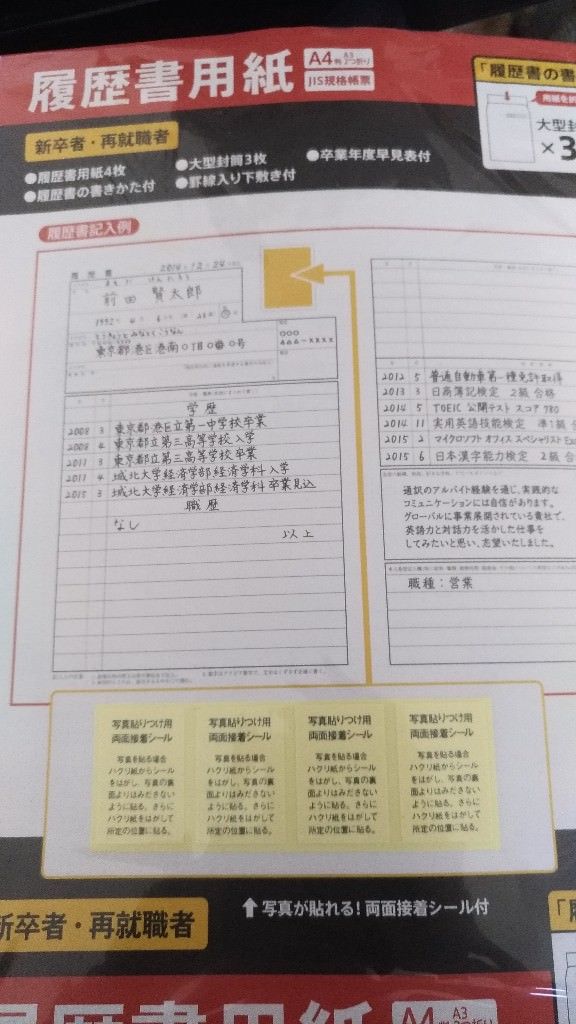 履歴書用紙
A4判 A3 2つ折り
JIS規格帳票
「履歴書の書
用紙を折
大型封
×3
新卒者・再就職者
●履歴書用紙4枚
●大型封筒3枚
●卒業年度早見表付
●履歴書の書きかた付
●罫線入り下敷き付
履歴書記入例
履歴書
2014 12 24
前田 賢太郎
1992 4
とうきょうと みなとく こうなん
東京都港区港南○丁目○番○号
○○○
学歴・職歴
学歴
2008 3 東京都港区立第一中学校卒業
2008 4 東京都立第三高等学校入学
2011 3 東京都立第三高等学校卒業
2011 4 城北大学経済学部経済学科入学
2015 3 城北大学経済学部経済学科卒業見込
職歴
なし
以上
2012 5 普通自動車第一種免許取得
2013 3 日商簿記検定 2級 合格
2014 5 TOEIC 公開テスト スコア 780
2014 11 実用英語技能検定 準1級
2015 2 マイクロソフト オフィス スペシャリスト
2015 6 日本漢字能力検定 2級 合
通訳のアルバイト経験を通じ、実践的な
コミュニケーションには自信があります。
グローバルに事業展開されている貴社で、
英語力と対話力を活かした仕事を
してみたいと思い、志望いたしました。
職種：営業
写真貼りつけ用
両面接着シール
写真を貼る場合
ハクリ紙からシール
をはがし、写真の裏
面よりはみださない
ように貼る。さらに
ハクリ紙をはがして
所定の位置に貼る。
写真貼りつけ用
両面接着シール
写真を貼る場合
ハクリ紙からシール
をはがし、写真の裏
面よりはみださない
ように貼る。さらに
ハクリ紙をはがして
所定の位置に貼る。
写真貼りつけ用
両面接着シール
写真を貼る場合
ハクリ紙からシール
をはがし、写真の裏
面よりはみださない
ように貼る。さらに
ハクリ紙をはがして
所定の位置に貼る。
写真貼りつけ用
両面接着シール
写真を貼る場合
ハクリ紙からシール
をはがし、写真の裏
面よりはみださない
ように貼る。さらに
ハクリ紙をはがして
所定の位置に貼る。
↑写真が貼れる！両面接着シール付
新卒者・再就職者
履歴書用紙
A4 A3